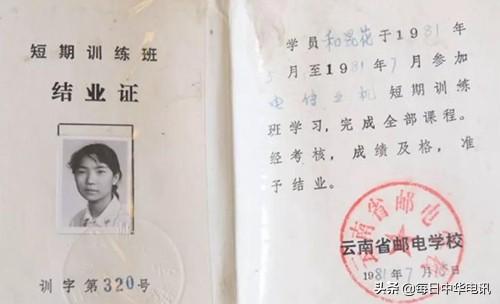 短期训练班
结业证
训字第320号
学员和昆花于1981年
5月至1981年7月参加
电传业机短期训练
班学习，完成全部课程。
经考核，成绩及格，准
予结业。
云南省邮电学校
云南省邮电学校
1981年7月15日
头条 @每日中华电讯